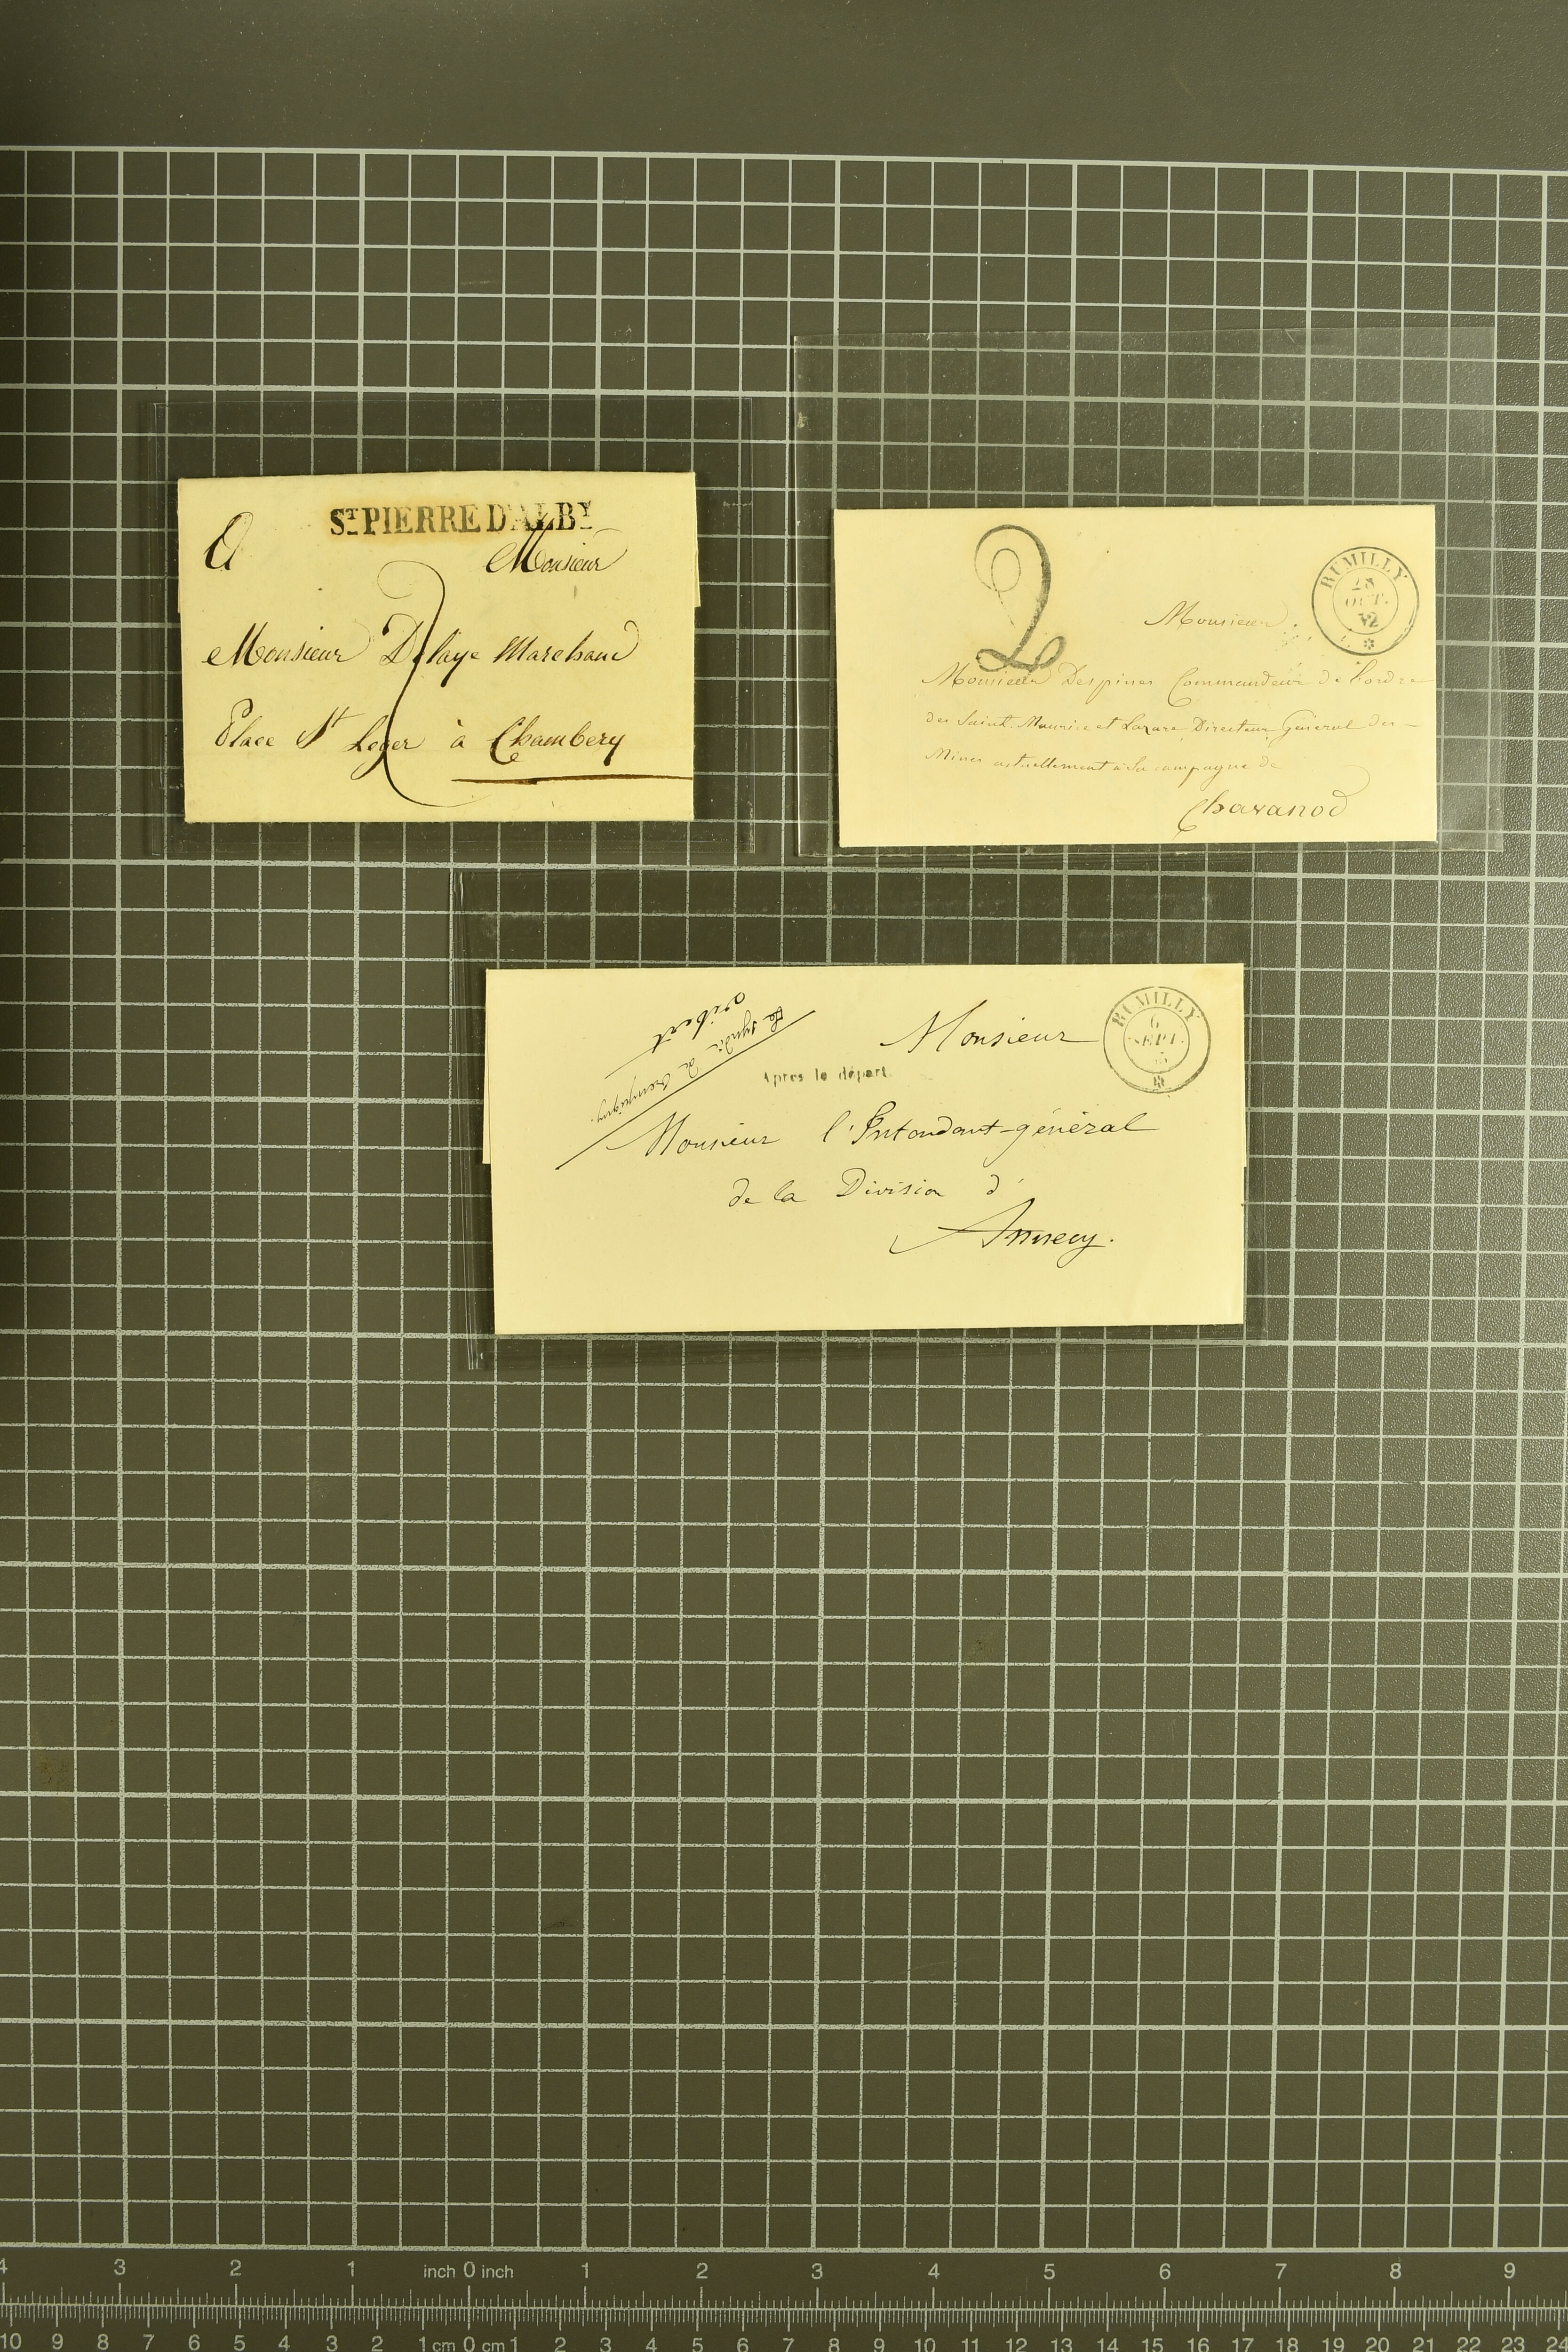 ST PIERRE D'ALBY
Monsieur
Monsieur Delaye Marchand
Place St Leger à Chambery
2
RUMILLY
OCT.
Monsieur
Monsieur Despines Commandeur de l'ordre
des Saint Maurice et Lazare Directeur Général des
Mines actuellement à sa campagne de
Chavanod
RUMILLY
6
SEPT.
Monsieur
Après le départ.
Le syndic de
Monsieur l'Intendant-général
de la Division d'
Annecy.
4 3 2 1 inch 0 inch 1 2 3 4 5 6 7 8 9
10 9 8 7 6 5 4 3 2 1 cm 0 cm 1 2 3 4 5 6 7 8 9 10 11 12 13 14 15 16 17 18 19 20 21 22 23